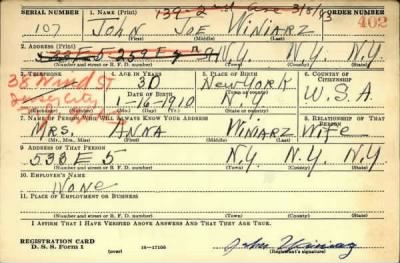 139-2nd Ave 3/5/43
SERIAL NUMBER 1. NAME (Print) ORDER NUMBER
107 JOHN JOE WINIARZ 402
(First) (Middle) (Last)
2. ADDRESS (Print)
N.Y. N.Y. N.Y.
(Number and street or R. F. D. number) (Town) (County) (State)
3. TELEPHONE 4. AGE IN YEARS 5. PLACE OF BIRTH 6. COUNTRY OF CITIZENSHIP
38 St
30 NEW YORK
City DATE OF BIRTH (Town or county) U.S.A.
1-16-1910 N.Y.
(Exchange) (No.) (Mo.) (Day) (Yr.) (State or country)
7. NAME OF PERSON WHO WILL ALWAYS KNOW YOUR ADDRESS 8. RELATIONSHIP OF THAT PERSON
MRS. ANNA WINIARZ WIFE
(Mr., Mrs., Miss) (First) (Middle) (Last)
9. ADDRESS OF THAT PERSON
538 E 5 N.Y. N.Y. N.Y.
(Number and street or R. F. D. number) (Town) (County) (State)
10. EMPLOYER'S NAME
NONE
11. PLACE OF EMPLOYMENT OR BUSINESS
(Number and street or R. F. D. number) (Town) (County) (State)
I AFFIRM THAT I HAVE VERIFIED ABOVE ANSWERS AND THAT THEY ARE TRUE.
REGISTRATION CARD
D. S. S. Form 1 (over) 16-17105 John Winiarz
(Registrant's signature)